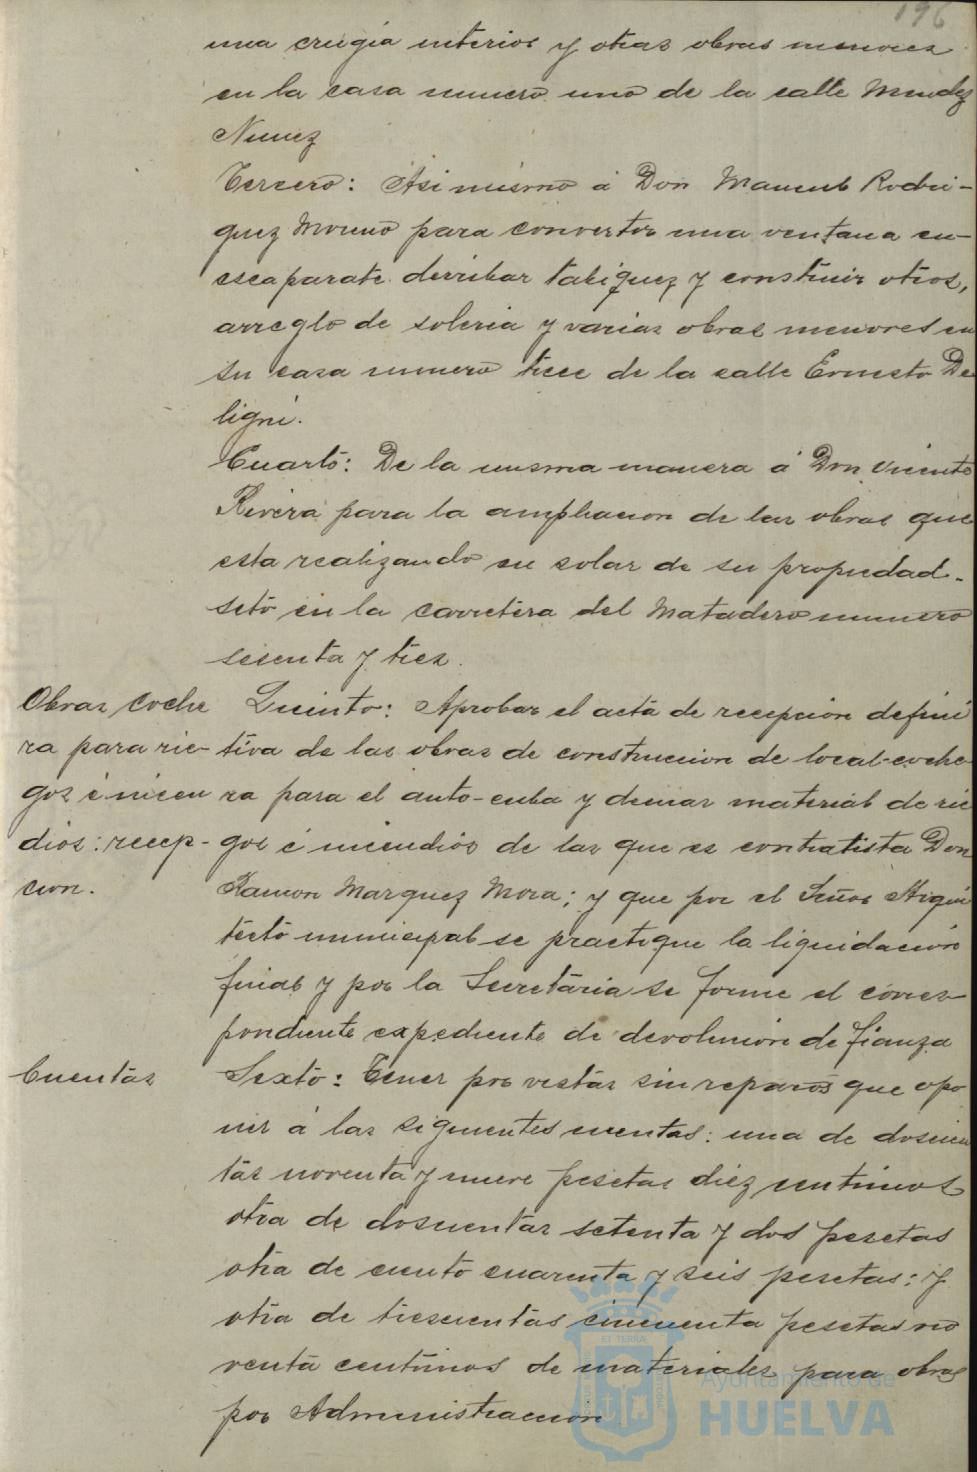 196
una crugia interior y otras obras menores
en la casa numero uno de la calle Mendez
Nuñez
Tercero: Asi mismo á Don Manuel Rodri-
guez Moreno para convertor una ventana en
escaparate derribar tabiquez y construir otros,
arreglo de soleria y varias obras menores en
su casa numero trece de la calle Ernesto De
ligni.
Cuarto: De la misma manera á Don Vicente
Rivera para la ampliacion de las obras que
esta realizando en solar de su propiedad.
sito en la carretera del Matadero numero
sesenta y tres.
Obras coche
ra para rie-
gos é incen
dios: recep-
cion.
Quinto: Aprobar el acta de recepcion defini
tiva de las obras de construccion de local-coche
ra para el auto-cuba y demas material de rie
gos é incendios de las que es contratista Don
Ramon Marquez Mora; y que por el Señor Arqui
tecto municipal se practique la liquidacion
final y por la Secretaria se forme el corres-
pondiente expediente de devolucion de fianza
Cuentas
Sexto: Tener por vistas sin reparos que opo
ner á las siguientes cuentas: una de doscien
tas noventa y nueve pesetas diez centimos
otra de doscientas setenta y dos pesetas
otra de ciento cuarenta y seis pesetas: y
otra de trescientas cincuenta pesetas no
venta centimos de materiales para obras
por Administracion
Ayuntamiento de
HUELVA